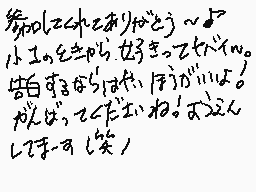 参加してくれてありがとう～♪
小1のときから好きってヤバイ～。
告白するならはやいほうがいいよ!
がんばってくださいね!おうえん
してまーす(笑)